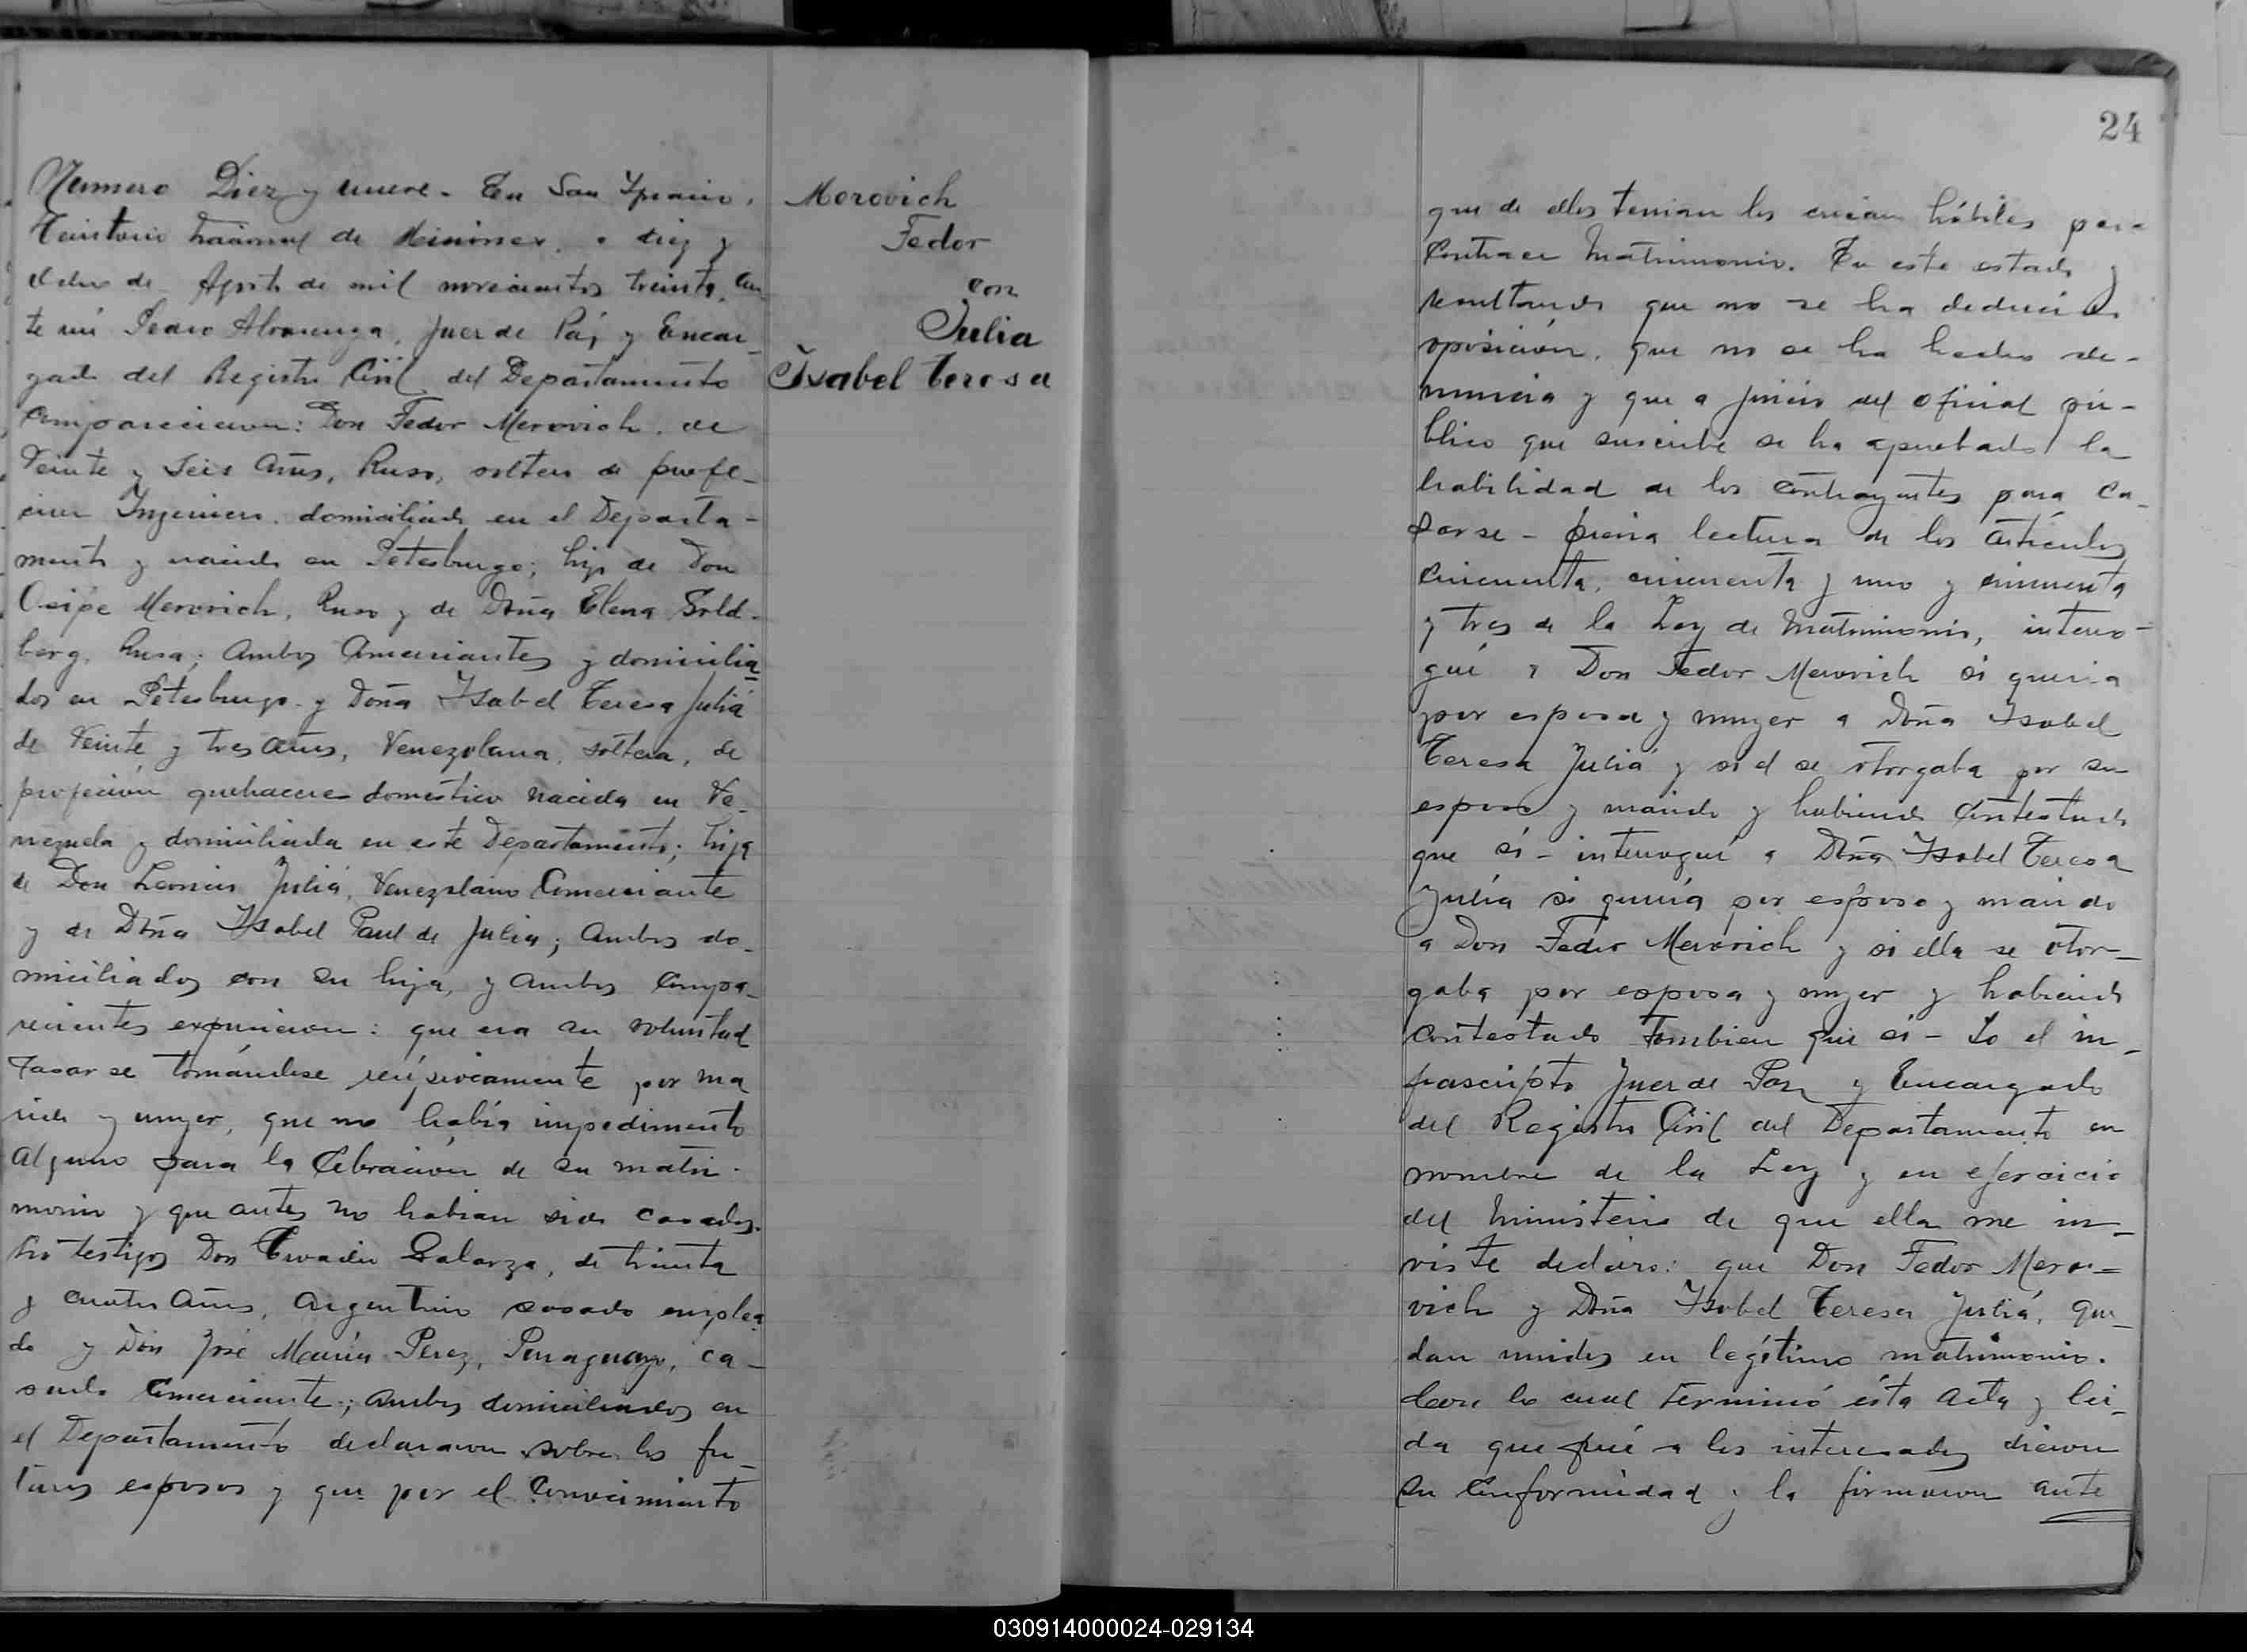 Numero Diez y nueve. En San Ygnacio,
Territorio Nacional de Misiones, a diez y
ocho de Agosto de mil novecientos treinta, an
te mi Pedro Alvarenga, Juez de Paz y Encar-
gado del Registro Civil del Departamento
comparecieron: Don Fedor Merovich, de
Veinte y Seis Años, Ruso, soltero de profe-
cion Ingeniero, domiciliado en el Departa-
mento y nacido en Petesburgo; hijo de Don
Osipe Merovich, Ruso y de Doña Elena Gold-
berg, Rusa; Ambos Comerciantes y domicilia
dos en Petesburgo y Doña Ysabel Teresa Juliá
de Veinte y tres años, Venezolana, soltera, de
profeción quehaceres domestico nacida en Ve-
nezuela y domiciliada en este Departamento; hija
de Don Leoncio Juliá, Venezolano Comerciante
y de Doña Ysabel Paul de Julia; Ambos do-
miciliados con su hija, y ambos Compa-
recientes expusieron: que era su voluntad
Casarse tomándose recíprocamente por ma
rido y mujer, que no había impedimento
Alguno para la Celbracion de su matri-
monio y que antes no habian sido casados.
Los testigos Don Galarza, de treinta
y cuatro Años, Argentino casado emplea
do y Don José María Perez, Paraguayo, ca-
sado Comerciante; ambos domiciliados en
el Departamento declararon sobre los fu-
turos esposos y que por el Conocimiento
Merovich
Fedor
con
Julia
Isabel Teresa
24
que de ellos tenian los creian hábiles para
Contraer Matrimonio. En este estado y
resultando que no se ha deducido
oposición, que no se ha hecho de-
nuncia y que a juicio del oficial pú-
blico que suscribe se ha aprobado la
habilidad de los contrayentes para Ca-
sarse - previa lectura de los artículos
cincuenta, cincuenta y uno y cincuenta
y tres de la Ley de Matrimonio, interro-
gué a Don Fedor Merovich si queria
por esposa y mujer a Doña Ysabel
Teresa Juliá y si el se otorgaba por su
esposo y marido y habiendo Contestado
que sí - interrogué a Doña Ysabel Teresa
Julia si quería por esposo y marido
a Don Fedor Merovich y si ella se otor-
gaba por esposa y mujer y habiendo
contestado tambien que si - Yo el in-
frascripto Juez de Paz y Encargado
del Registro Civil del Departamento en
nombre de la Ley y en ejercicio
del Ministerio de que ella me in-
viste declaro: que Don Fedor Mero=
vich y Doña Ysabel Teresa Juliá, que-
dan unidos en legítimo matrimonio.
Con lo cual terminó ésta Acta y lei-
da que fué a los interesados dieron
su Conformidad y la firmaron ante
030914000024-029134